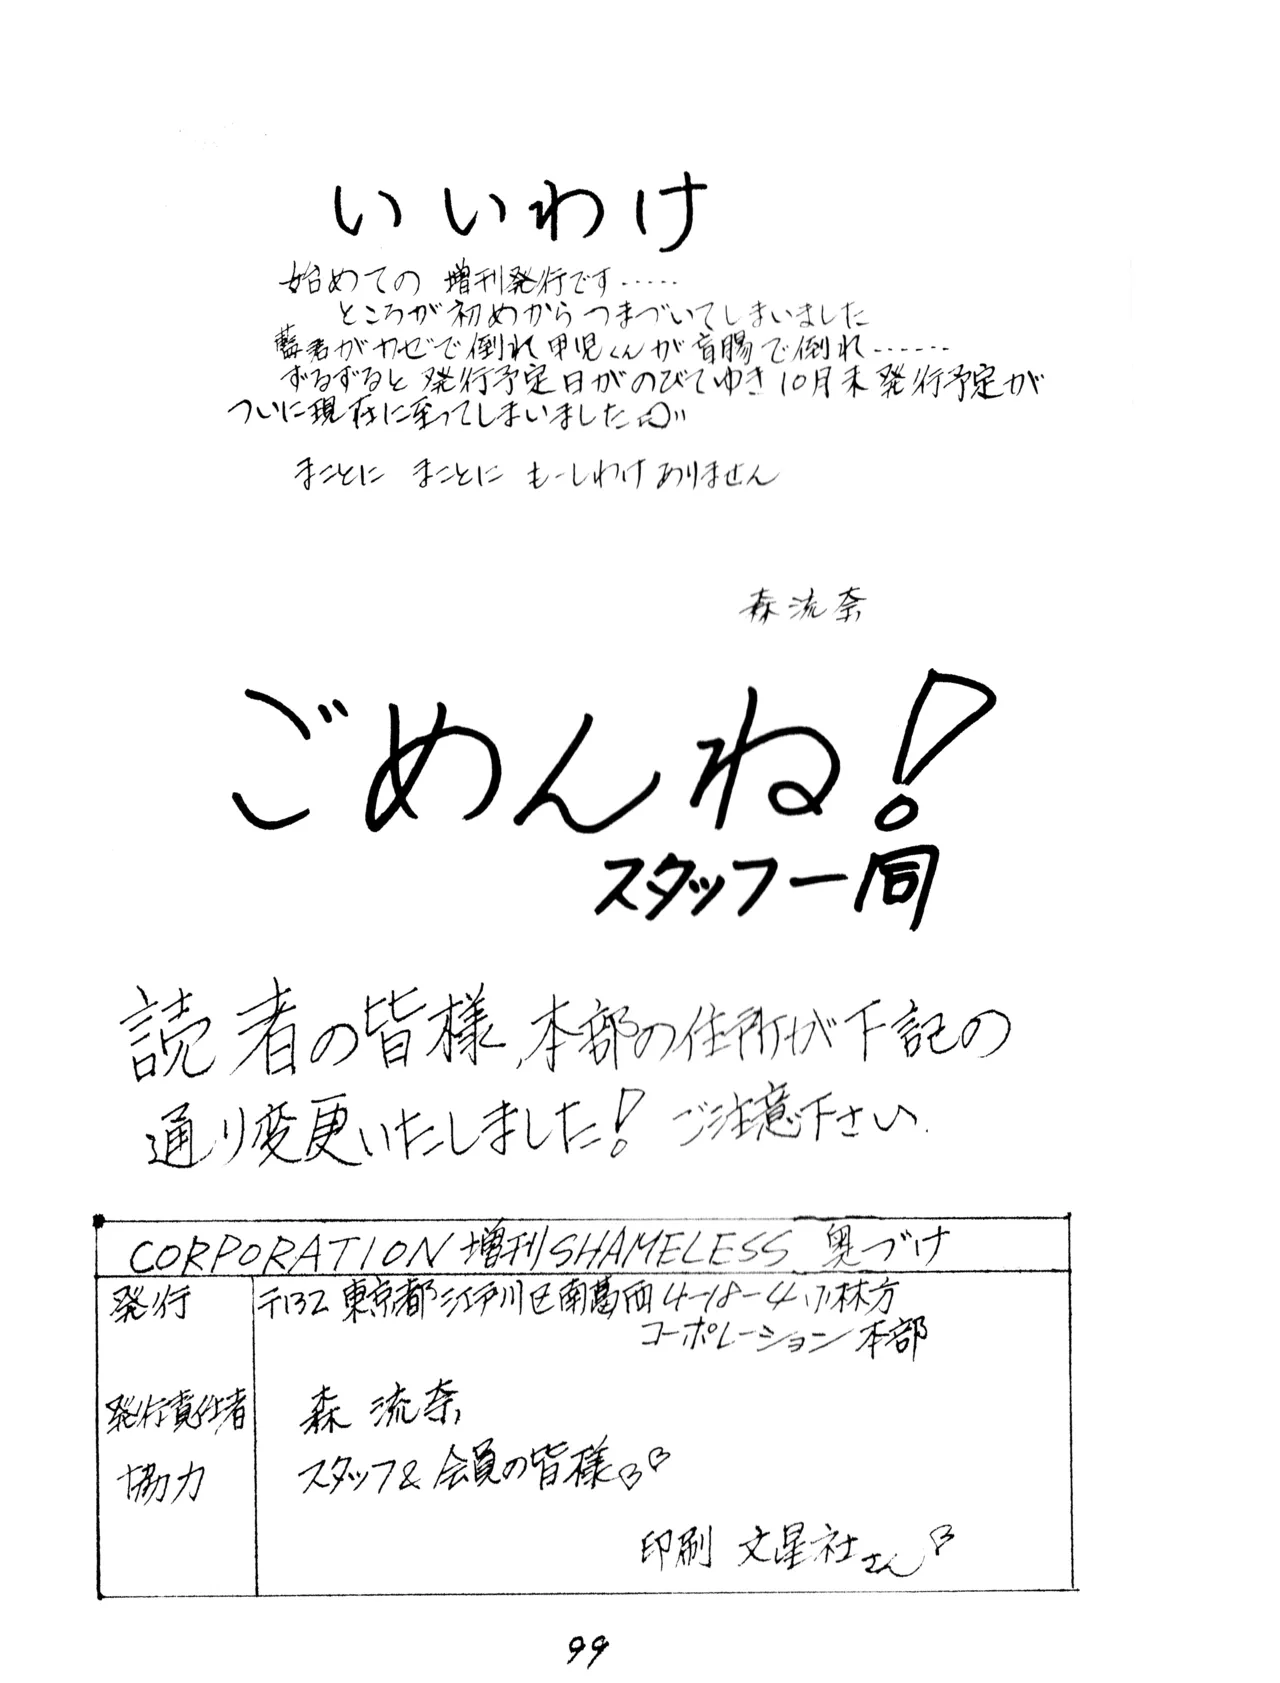 いいわけ
始めての 増刊発行です……
ところが初めからつまづいてしまいました
藍君がカゼで倒れ甲児くんが盲腸で倒れ……
ずるずると発行予定日がのびてゆき10月末発行予定が
ついに現在に至ってしまいました
まことに まことに もーしわけありません
森流奈
ごめんね!
スタッフ一同
読者の皆様、本部の住所が下記の
通り変更いたしました! ご注意下さい.
CORPORATION増刊SHAMELESS 奥づけ
発行 〒132 東京都江戸川区南葛西4-18-4 小林方
コーポレーション本部
発行責任者 森 流奈
協力 スタッフ&会員の皆様♡♡
印刷 文星社さん♡
99